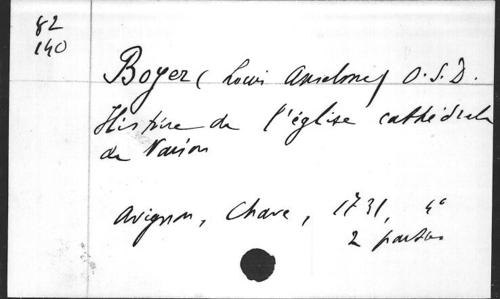 82
140
Boyer (Louis Anselme) O.S.D.
Histoire de l'église cathédrale
de Vaison
Avignon, Chave, 1731, 4°
2 parties